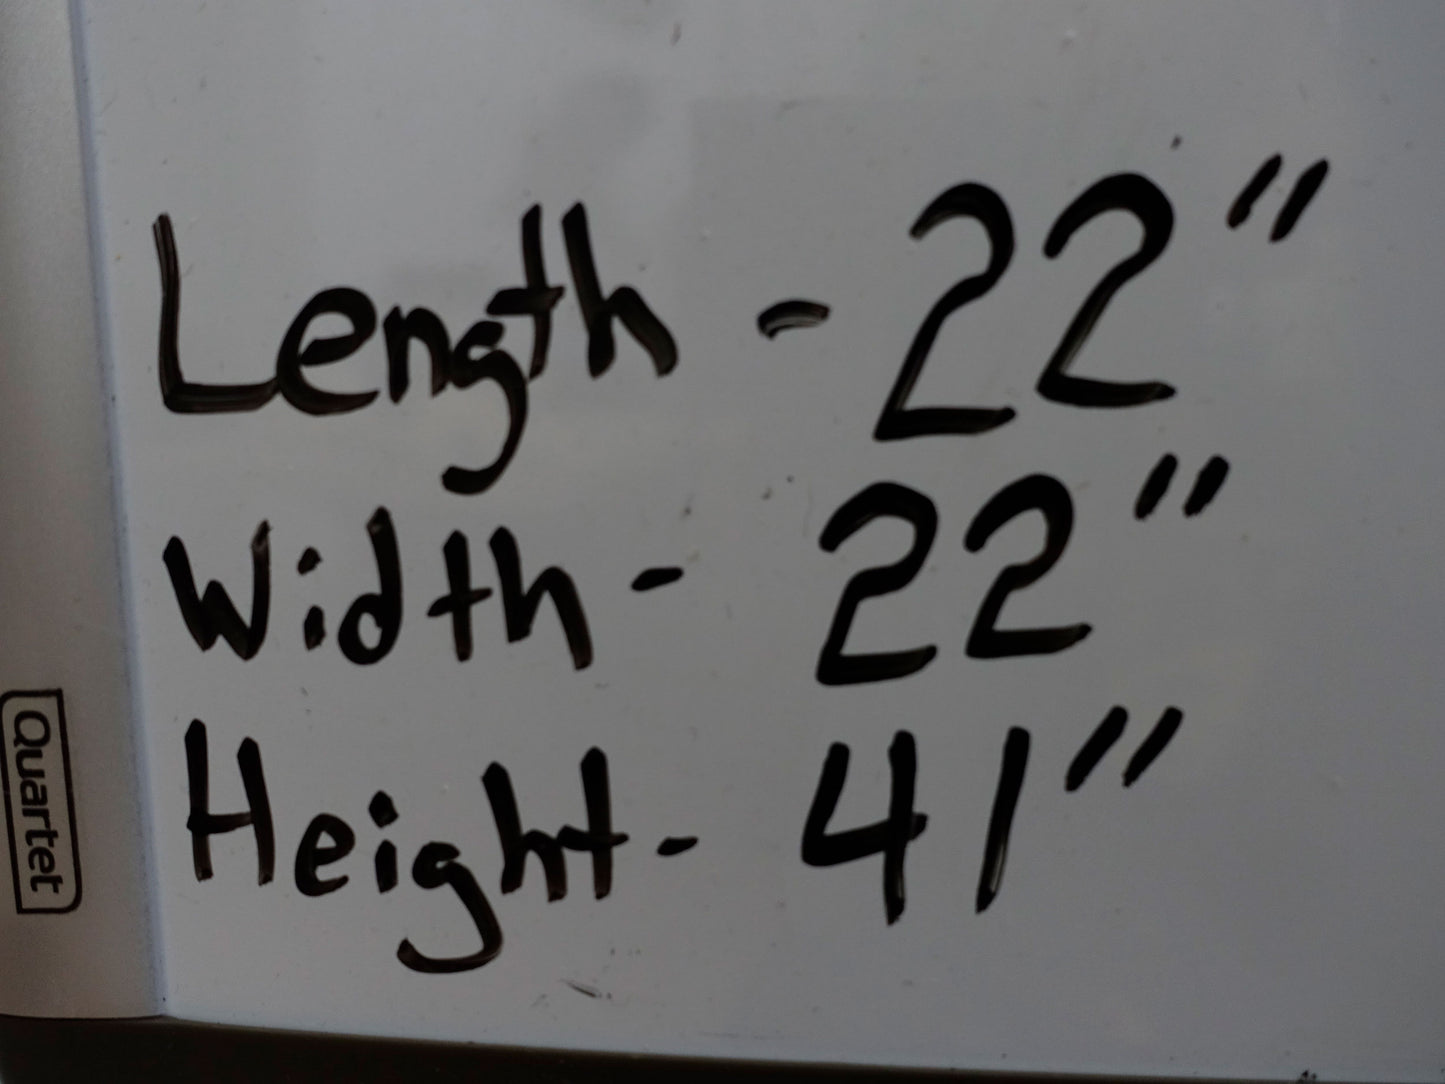 Length - 22"
Width - 22"
Height - 41"
Quartet